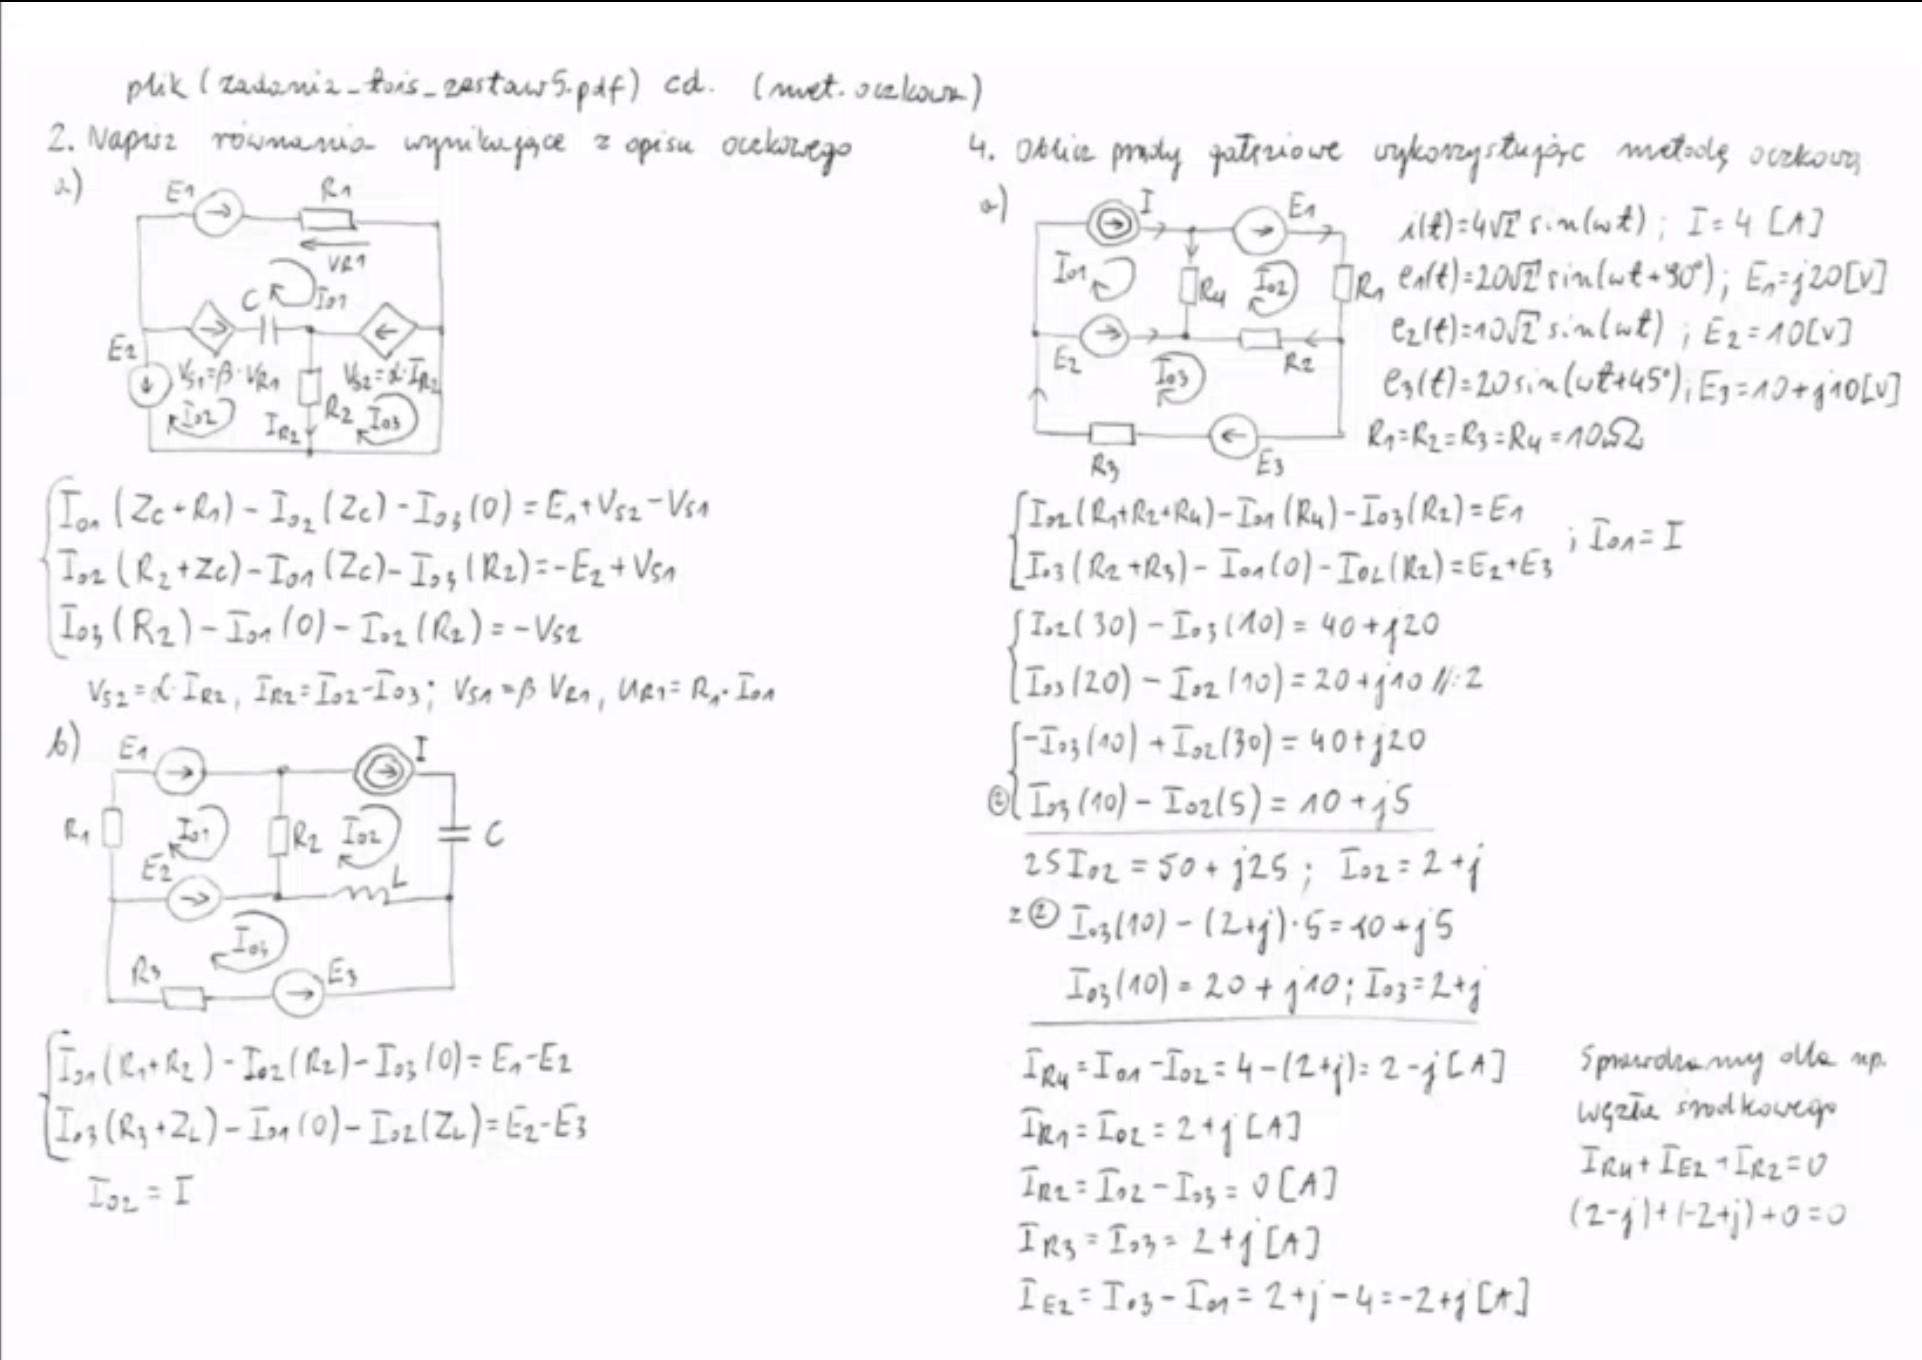 plik (zadania_tois_zestaw5.pdf) cd. (met. oczkowa)
2. Napisz równania wynikające z opisu oczkowego
a)
E1
R1
VR1
Io1
C
E2
Vs1=β·VR1
Vs2=α·IR2
Io2
IR2
R2
Io3
Io1 (Zc+R1) - Io2 (Zc) - Io3 (0) = E1+Vs2-Vs1
Io2 (R2+Zc) - Io1 (Zc) - Io3 (R2) = -E2+Vs1
Io3 (R2) - Io1 (0) - Io2 (R2) = -Vs2
Vs2 = α·IR2, IR2 = Io2-Io3; Vs1 = β VR1, UR1 = R1·Io1
b)
E1
I
R1
Io1
R2
Io2
C
E2
L
Io3
R3
E3
Io1 (R1+R2) - Io2 (R2) - Io3 (0) = E1-E2
Io3 (R3+ZL) - Io1 (0) - Io2 (ZL) = E2-E3
Io2 = I
4. Oblicz prądy gałęziowe wykorzystując metodę oczkową
a)
I
E1
Io1
R4
Io2
R1
E2
R2
Io3
R3
E3
i(t)=4√2 sin(ωt) ; I = 4 [A]
e1(t)=20√2 sin(ωt+90°) ; E1=j20[V]
e2(t)=10√2 sin(ωt) ; E2=10[V]
e3(t)=20 sin(ωt+45°) ; E3=10+j10[V]
R1=R2=R3=R4=10Ω
Io2 (R1+R2+R4) - Io1 (R4) - Io3 (R2) = E1
; Io1 = I
Io3 (R2+R3) - Io1 (0) - Io2 (R2) = E2+E3
Io2 (30) - Io3 (10) = 40+j20
Io3 (20) - Io2 (10) = 20+j10 //:2
-Io3 (10) + Io2 (30) = 40+j20
② Io3 (10) - Io2 (5) = 10+j5
25 Io2 = 50+j25 ; Io2 = 2+j
z ② Io3 (10) - (2+j)·5 = 10+j5
Io3 (10) = 20+j10; Io3 = 2+j
IR4 = Io1-Io2 = 4-(2+j) = 2-j [A]
IR1 = Io2 = 2+j [A]
IR2 = Io2-Io3 = 0 [A]
IR3 = Io3 = 2+j [A]
IE2 = Io3-Io1 = 2+j-4 = -2+j [A]
Sprawdzamy dla np.
węzła środkowego
IR4+IE2+IR2=0
(2-j)+(-2+j)+0=0